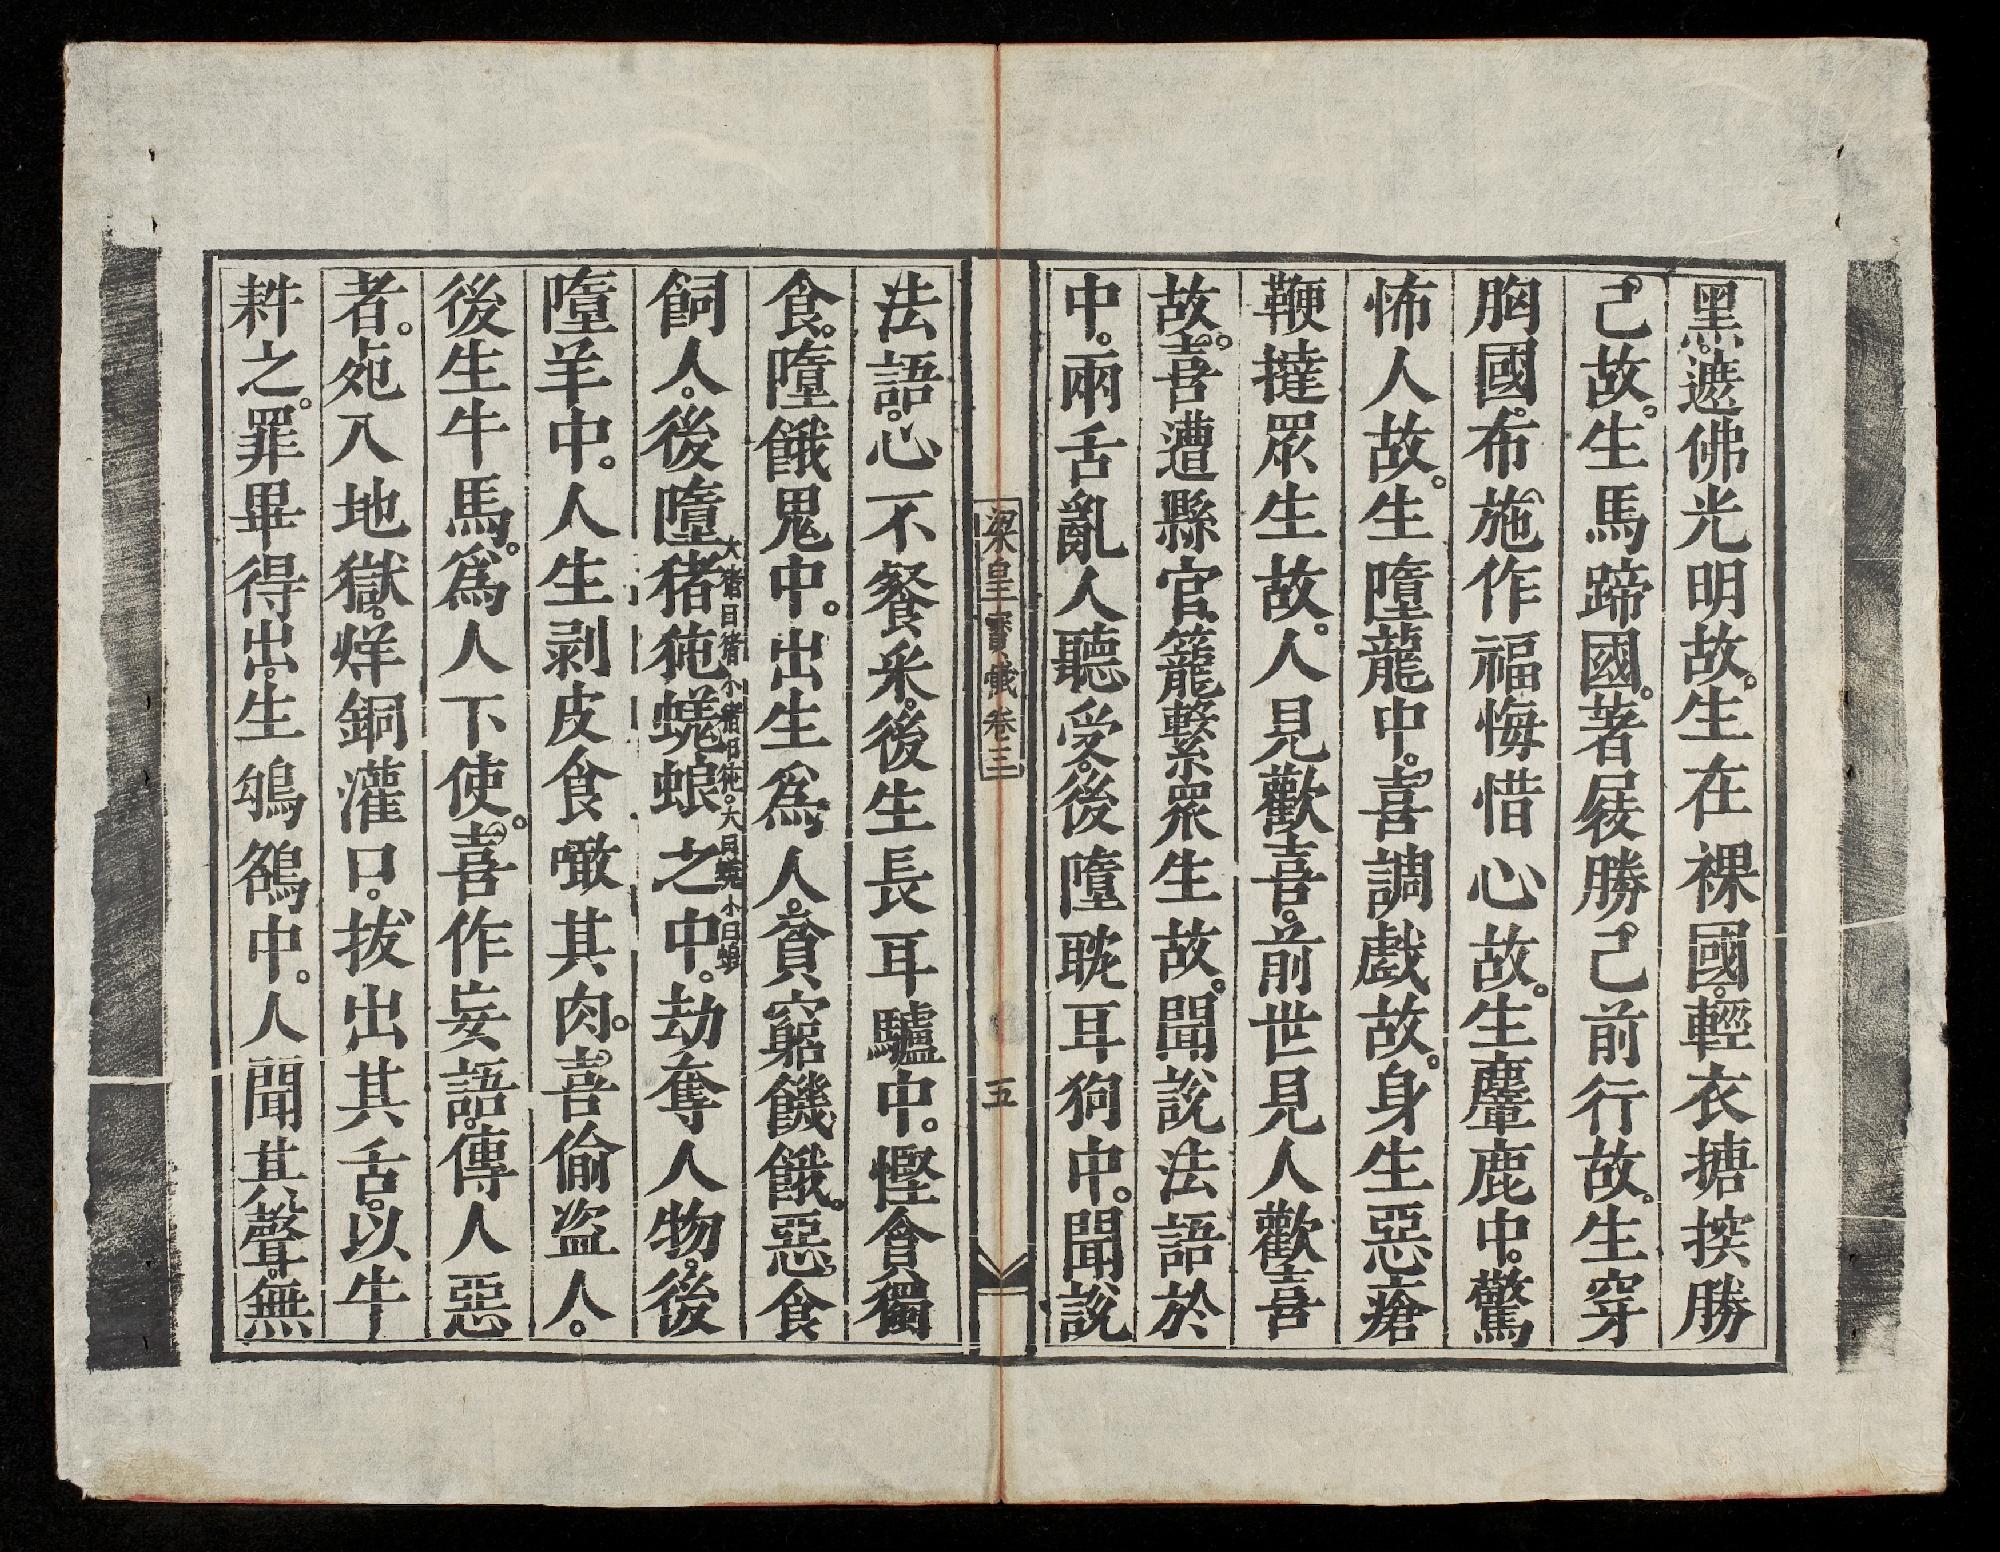 黑。遮佛光明故。生在裸國。輕衣搪揬勝
己故。生馬蹄國。著屐勝己前行故。生穿
胸國。布施作福悔惜心故。生麞鹿中。驚
怖人故。生墮龍中。喜調戲故。身生惡瘡
鞭撻眾生故。人見歡喜。前世見人歡喜
故。喜遭縣官籠繫眾生故。聞說法語於
中。兩舌亂人聽受。後墮耽耳狗中。聞說
梁皇寶懺卷三
五
法語。心不餐采。後生長耳驢中。慳貪獨
食。墮餓鬼中。出生為人。貧窮饑餓。惡食
飼人。後墮猪㹠蜣蜋之中。劫奪人物。後
大猪曰猪小猪曰㹠。大曰蜣小曰蜋
墮羊中。人生剥皮食噉其肉。喜偷盗人。
後生牛馬。爲人下使。喜作妄語。傳人惡
者。死入地獄。烊銅灌口。拔出其舌。以牛
耕之。罪畢得出。生鴝鵒中。人聞其聲。無